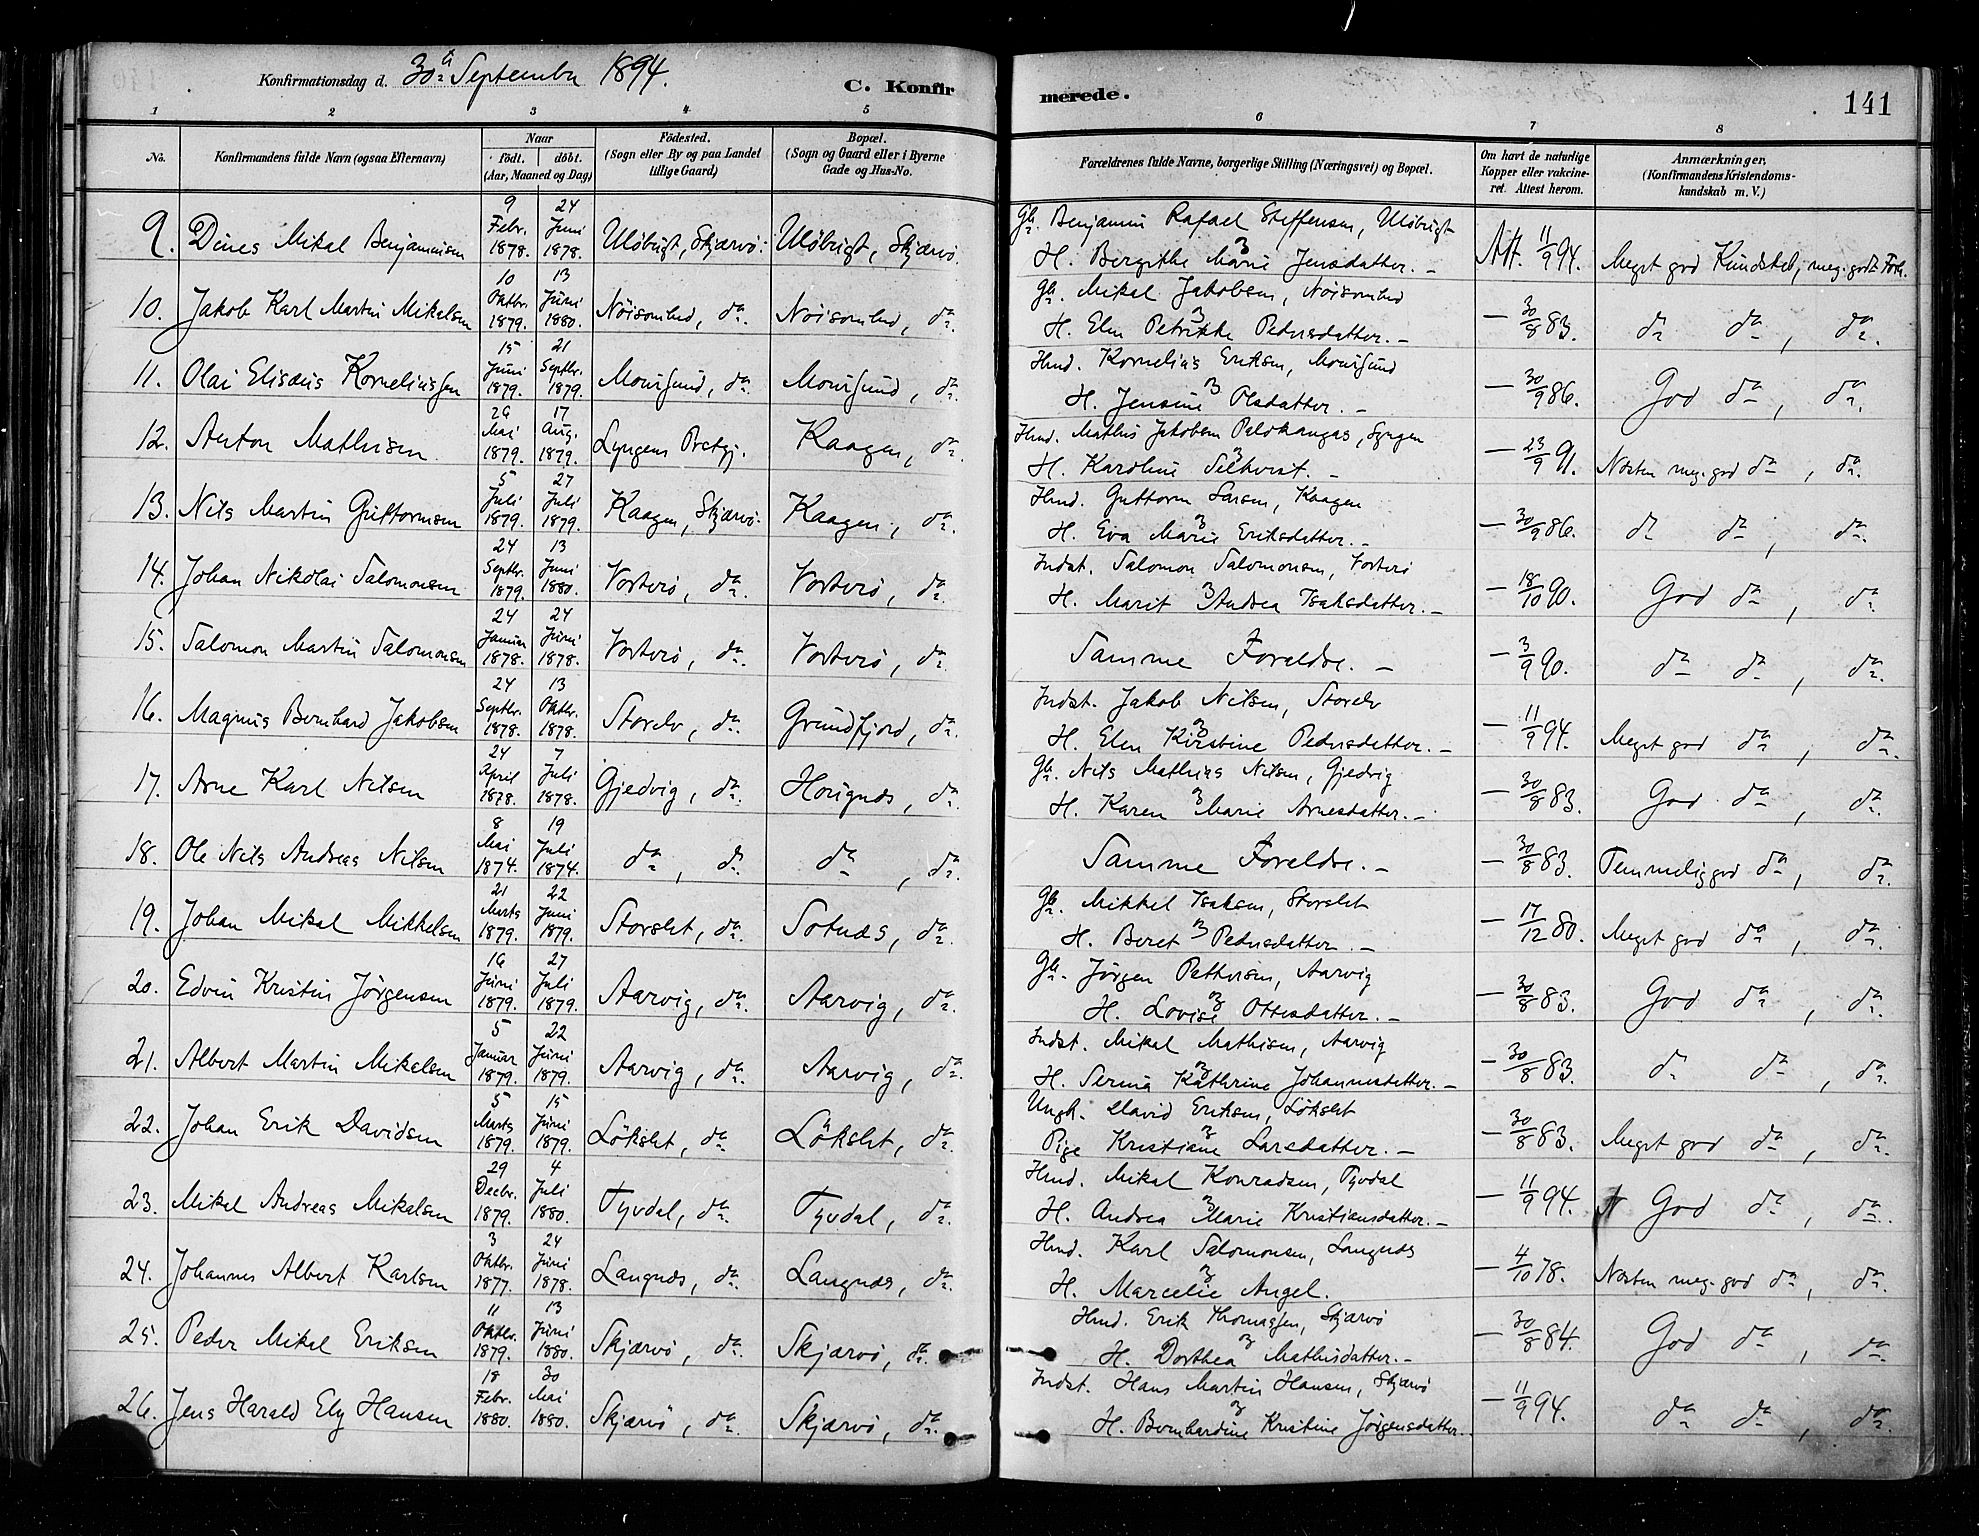 Konfirmationsdag d. 30te September 1894.
C. Konfirmerede.
141
1 2 3 4 5 6 7 8
No. Konfirmandens fulde Navn (ogsaa Efternavn) Naar født. døbt. (Aar, Maaned og Dag) Födested. (Sogn eller By og paa Landet tillige Gaard) Bopæl. (Sogn og Gaard eller i Byerne Gade og Hus-No. Forældrenes fulde Navne, borgerlige Stilling (Næringsvei) og Bopæl. Om havt de naturlige Kopper eller vakcineret. Attest herom. Anmærkninger. (Konfirmandens Kristendomskundskab m. V.)
9. Dines Mikal Benjaminsen 9 Febr. 1878. 24 Juni 1878. Uløbugt, Skjærvö. Uløbugt, Skjærvö. Gb. Benjamin Rafael Steffensen, Uløbugt
H. Bergithe Marie Jensdatter. – Att. 11/9 94. Meget god Kundskab, meg. godt Forh.
10. Jakob Karl Martin Mikalsen 10 Oktbr. 1879. 13 Juni 1880. Nöisomhed, do. Nöisomhed, do. Gb. Mikal Jakobsen, Nöisomhed
H. Elen Petrikke Pedersdatter. – – 30/8 83. do do, do.
11. Olai Elisæus Korneliussen 15 Juni 1879. 21 Septbr. 1879. Maursund, do. Maursund, do. Hmd. Kornelius Eriksen, Maursund
H. Jensine Olsdatter. – – 30/9 86. God do, do.
12. Anton Mathisen. 29 Mai 1879. 17 Aug. 1879. Lyngens Prstgj. Kaagen, do. Hmd. Mathis Jakobsen Palokangas, Lyngen
H. Karoline – – 23/9 91. Næsten meg. god do, do.
13. Nils Martin Guttormsen 5 Juli 1879. 27 Juli 1879. Kaagen, Skjærvö. Kaagen, do. Hmd. Guttorm Larsen, Kaagen
H. Eva Marie Eriksdatter. – – 30/9 86. do do, do.
14. Johan Nikolai Salomonsen 24 Septbr. 1879. 13 Juni 1880. Vorterö, do. Vorterö, do. Indst. Salomon Salomonsen, Vorterö
H. Marit Andrea Isaksdatter. – – 18/10 90. God do, do.
15. Salomon Martin Salomonsen 24 Januar 1878. 24 Juni 1878. Vorterö, do. Vorterö, do. Samme Foreldre. – – 3/9 90. do do, do.
16. Magnus Bernhard Jakobsen 24 Septbr. 1878. 13 Oktbr. 1878. Storelv, do. Grundfjord, do. Indst. Jakob Nilsen, Storelv
H. Elen Kirstine Pedersdatter. – – 11/9 94. Meget god do, do.
17. Arne Karl Nilsen 24 April 1878. 7 Juli 1878. Gjedvig, do. Haugnæs, do. Gb. Nils Mathias Nilsen, Gjedvig
H. Karen Marie Arnesdatter. – – 30/8 83. God do, do.
18. Ole Nils Andreas Nilsen 8 Mai 1874. 19 Juli 1874. do, do do, do. Samme Foreldre. – – 30/8 83. Temmelig god do, do.
19. Johan Mikal Mikkelsen 21 Marts 1879. 22 Juni 1879. Storslet, do. Sotnæs, do. Gb. Mikkel Isaksen, Storslet
H. Beret Pedersdatter. – – 17/12 80. Meget god do, do.
20. Edvin Kristin Jörgensen 16 Juni 1879. 27 Juli 1879. Aarvig, do. Aarvig, do. Gb. Jörgen Pettersen, Aarvig
H. Lovise Ottesdatter. – – 30/8 83. God do, do.
21. Albert Martin Mikalsen 5 Januar 1879. 22 Juni 1879. Aarvig, do. Aarvig, do. Indst. Mikal Mathisen, Aarvig
H. Serina Kathrine Johannesdatter. – – 30/8 83. do do, do.
22. Johan Erik Davidsen 5 Marts 1879. 15 Juni 1879. Lökslet, do. Lökslet, do. Ungk. David Eriksen, Lökslet
Pige Kristiane Larsdatter. – – 30/8 83. Meget god do, do.
23. Mikal Andreas Mikalsen 29 Decbr. 1879. 4 Juli 1880. Tyvdal, do. Tyvdal, do. Hmd. Mikal Konradsen, Tyvdal
H. Andrea Marie Kristiansdatter. – – 11/9 94. God do, do.
24. Johannes Albert Karlsen 3 Oktbr. 1877. 24 Juni 1878. Langnæs, do. Langnæs, do. Hmd. Karl Salomonsen, Langnæs
H. Marcelie Angel. – 4/10 78. Næsten meg. god do, do.
25. Peder Mikal Eriksen 11 Oktbr. 1879. 13 Juni 1880. Skjærvö, do. Skjærvö, do. Hmd. Erik Thomassen, Skjærvö
H. Dorthea Mathisdatter. – – 30/8 84. God do, do.
26. Jens Harald Ely Hansen 18 Febr. 1880. 30 Mai 1880. Skjærvö, do. Skjærvö, do. Indst. Hans Martin Hansen, Skjærvö
H. Bernhardine Kristine Jörgensdatter. – 11/9 94. do do, do.